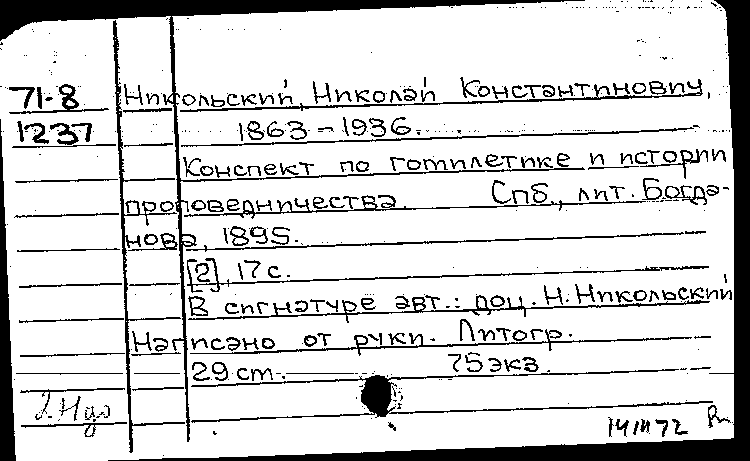 71-8 Никольский, Николай Константинович,
1237 1863-1936.
Конспект по гомилетике и истории
проповедничества. Спб., лит. Богда-
нова, 1895.
[2], 17 с.
В сигнатуре авт.: доц. Н. Никольский
Написано от руки. Литогр.
29 cm. 75 экз.